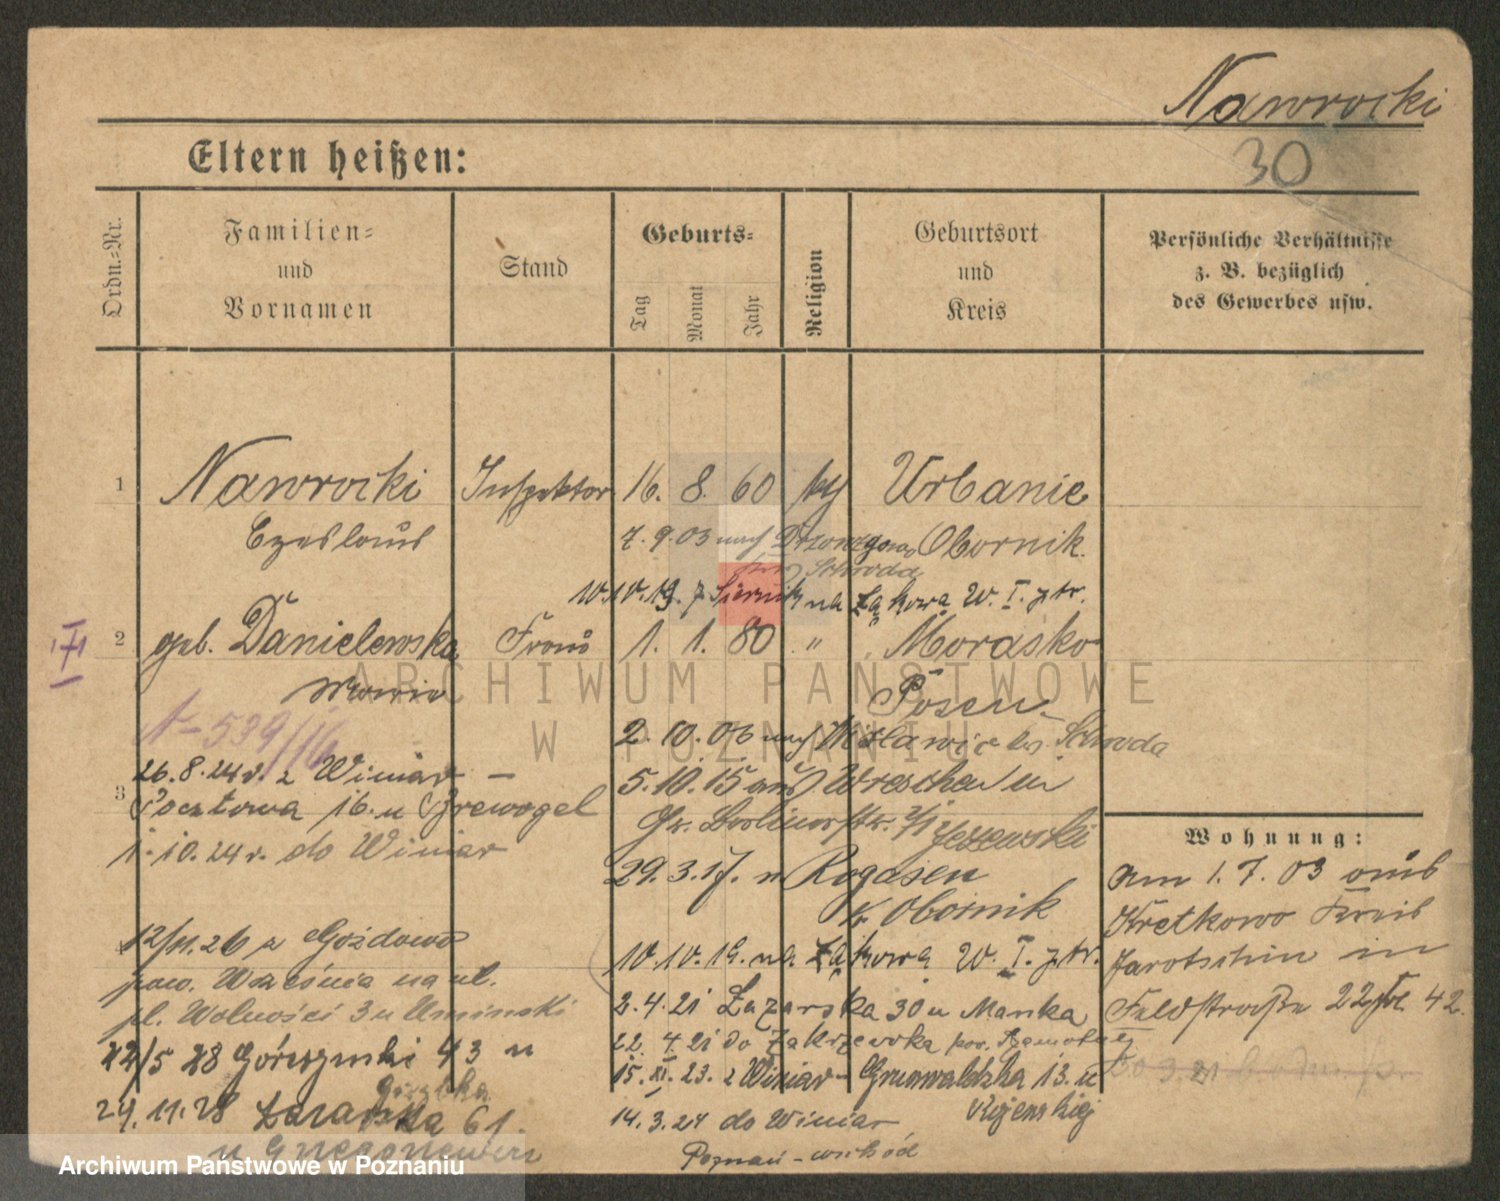 Nawrocki
Eltern heißen:
30
Ordn.-Nr.
Familien- und Vornamen
Stand
Geburts-
Tag
Monat
Jahr
Religion
Geburtsort und Kreis
Persönliche Verhältnisse z. B. bezüglich des Gewerbes usw.
1 Nawrocki Inspektor 16. 8. 60 Urbanie
Czeslaus 7. 9. 03 nach Obornik
Schroda
10.10.19. z Siernik na Łąkowa W. I. ptr.
2 geb. Danielewska Frau 1. 1. 80 " Morasko
Maria Posen
539/16 2. 10. 06 nach Schroda
26.8.24 r. z Winiar – 5.10.15 aus Wreschen in
3 Pocztowa 16. u Gr. Berlinerstr. Jezewski
1.10.24 r. do Winiar 29.3.17. n Rogasen
Kr. Obornik
4 12/11.26 z Goździowa 10.10.19. na Łąkowa W. I. ptr.
pow. Września na ul. 2.4.21 Łazarska 30 u Manka
pl. Wolności 3 u Uminski 22. 4. 21 do Zakrzewka pow.
22/5 28 43 u 15. XI. 23. z Winiar – Grunwaldzka 13. u
24.11.28 61. 14.3.24 do Winiar
u Poznań – wschód
Wohnung:
am 1. 7. 03 aus
Kretkowo Kreis
Jarotschin in
Feldstraße 22 42.
ARCHIWUM PAŃSTWOWE
W POZNANIU
Archiwum Państwowe w Poznaniu